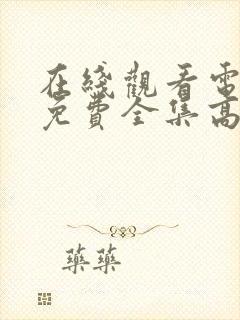 在綫觀看電
免費全集高
藥藥